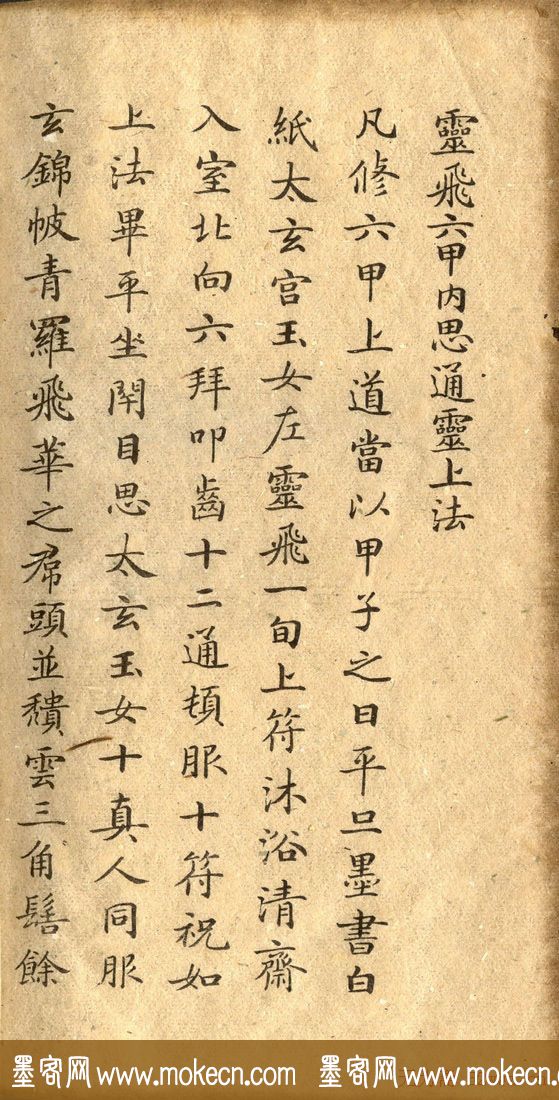 靈飛六甲內思通靈上法
凡修六甲上道當以甲子之日平旦墨書白
紙太玄宮玉女左靈飛一旬上符沐浴清齋
入室北向六拜叩齒十二通頓服十符祝如
上法畢平坐閉目思太玄玉女十真人同服
玄錦帔青羅飛華之帬頭並穨雲三角髻餘
墨客网 www.mokecn.com 墨客网 www.mokecn.com